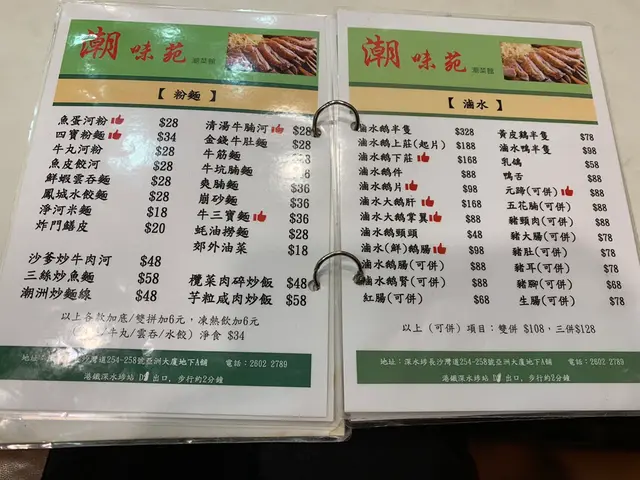 潮味苑 潮菜館
【 粉麵 】
魚蛋河粉 $28
四寶粉麵 $34
牛丸河粉 $28
魚皮餃河 $28
鮮蝦雲吞麵 $28
鳳城水餃麵 $28
淨河米麵 $18
炸門鱔皮 $20
清湯牛腩河 $28
金錢牛肚麵 $28
牛筋麵
牛坑腩麵
爽腩麵 $36
崩砂麵 $36
牛三寶麵 $36
蚝油撈麵 $28
郊外油菜 $18
沙爹炒牛肉河 $48
三絲炒魚麵 $58
潮洲炒麵線 $48
欖菜肉碎炒飯 $48
芋粒咸肉炒飯 $58
以上各款加底/雙拼加6元, 凍熱飲加6元
/牛丸/雲吞/水餃) 淨食 $34
地址: 長沙灣道254-258號亞洲大廈地下A鋪 電話:2602 2789
港鐵深水埗站 出口, 步行約2分鐘
潮味苑 潮菜館
【 滷水 】
滷水鵝半隻 $328
滷水鵝上莊(起片) $188
滷水鵝下莊 $168
滷水鵝件 $88
滷水鵝片 $98
滷水大鵝肝 $168
滷水大鵝掌翼 $88
滷水鵝頸頭 $48
滷水(鮮)鵝腸 $98
滷水鵝腸(可併) $88
滷水鵝腎(可併) $88
紅腸(可併) $68
黃皮鷄半隻 $78
滷水鴨半隻 $98
乳鴿 $58
鴨舌 $88
元蹄(可併) $88
五花腩(可併) $88
豬頸肉(可併) $88
豬大腸(可併) $78
豬肚(可併) $78
豬耳(可併) $78
豬腳(可併) $68
生腸(可併) $78
以上 (可併) 項目：雙併 $108, 三併$128
地址:深水埗長沙灣道254-258號亞洲大廈地下A鋪 電話:2602 2789
港鐵深水埗站 出口, 步行約2分鐘